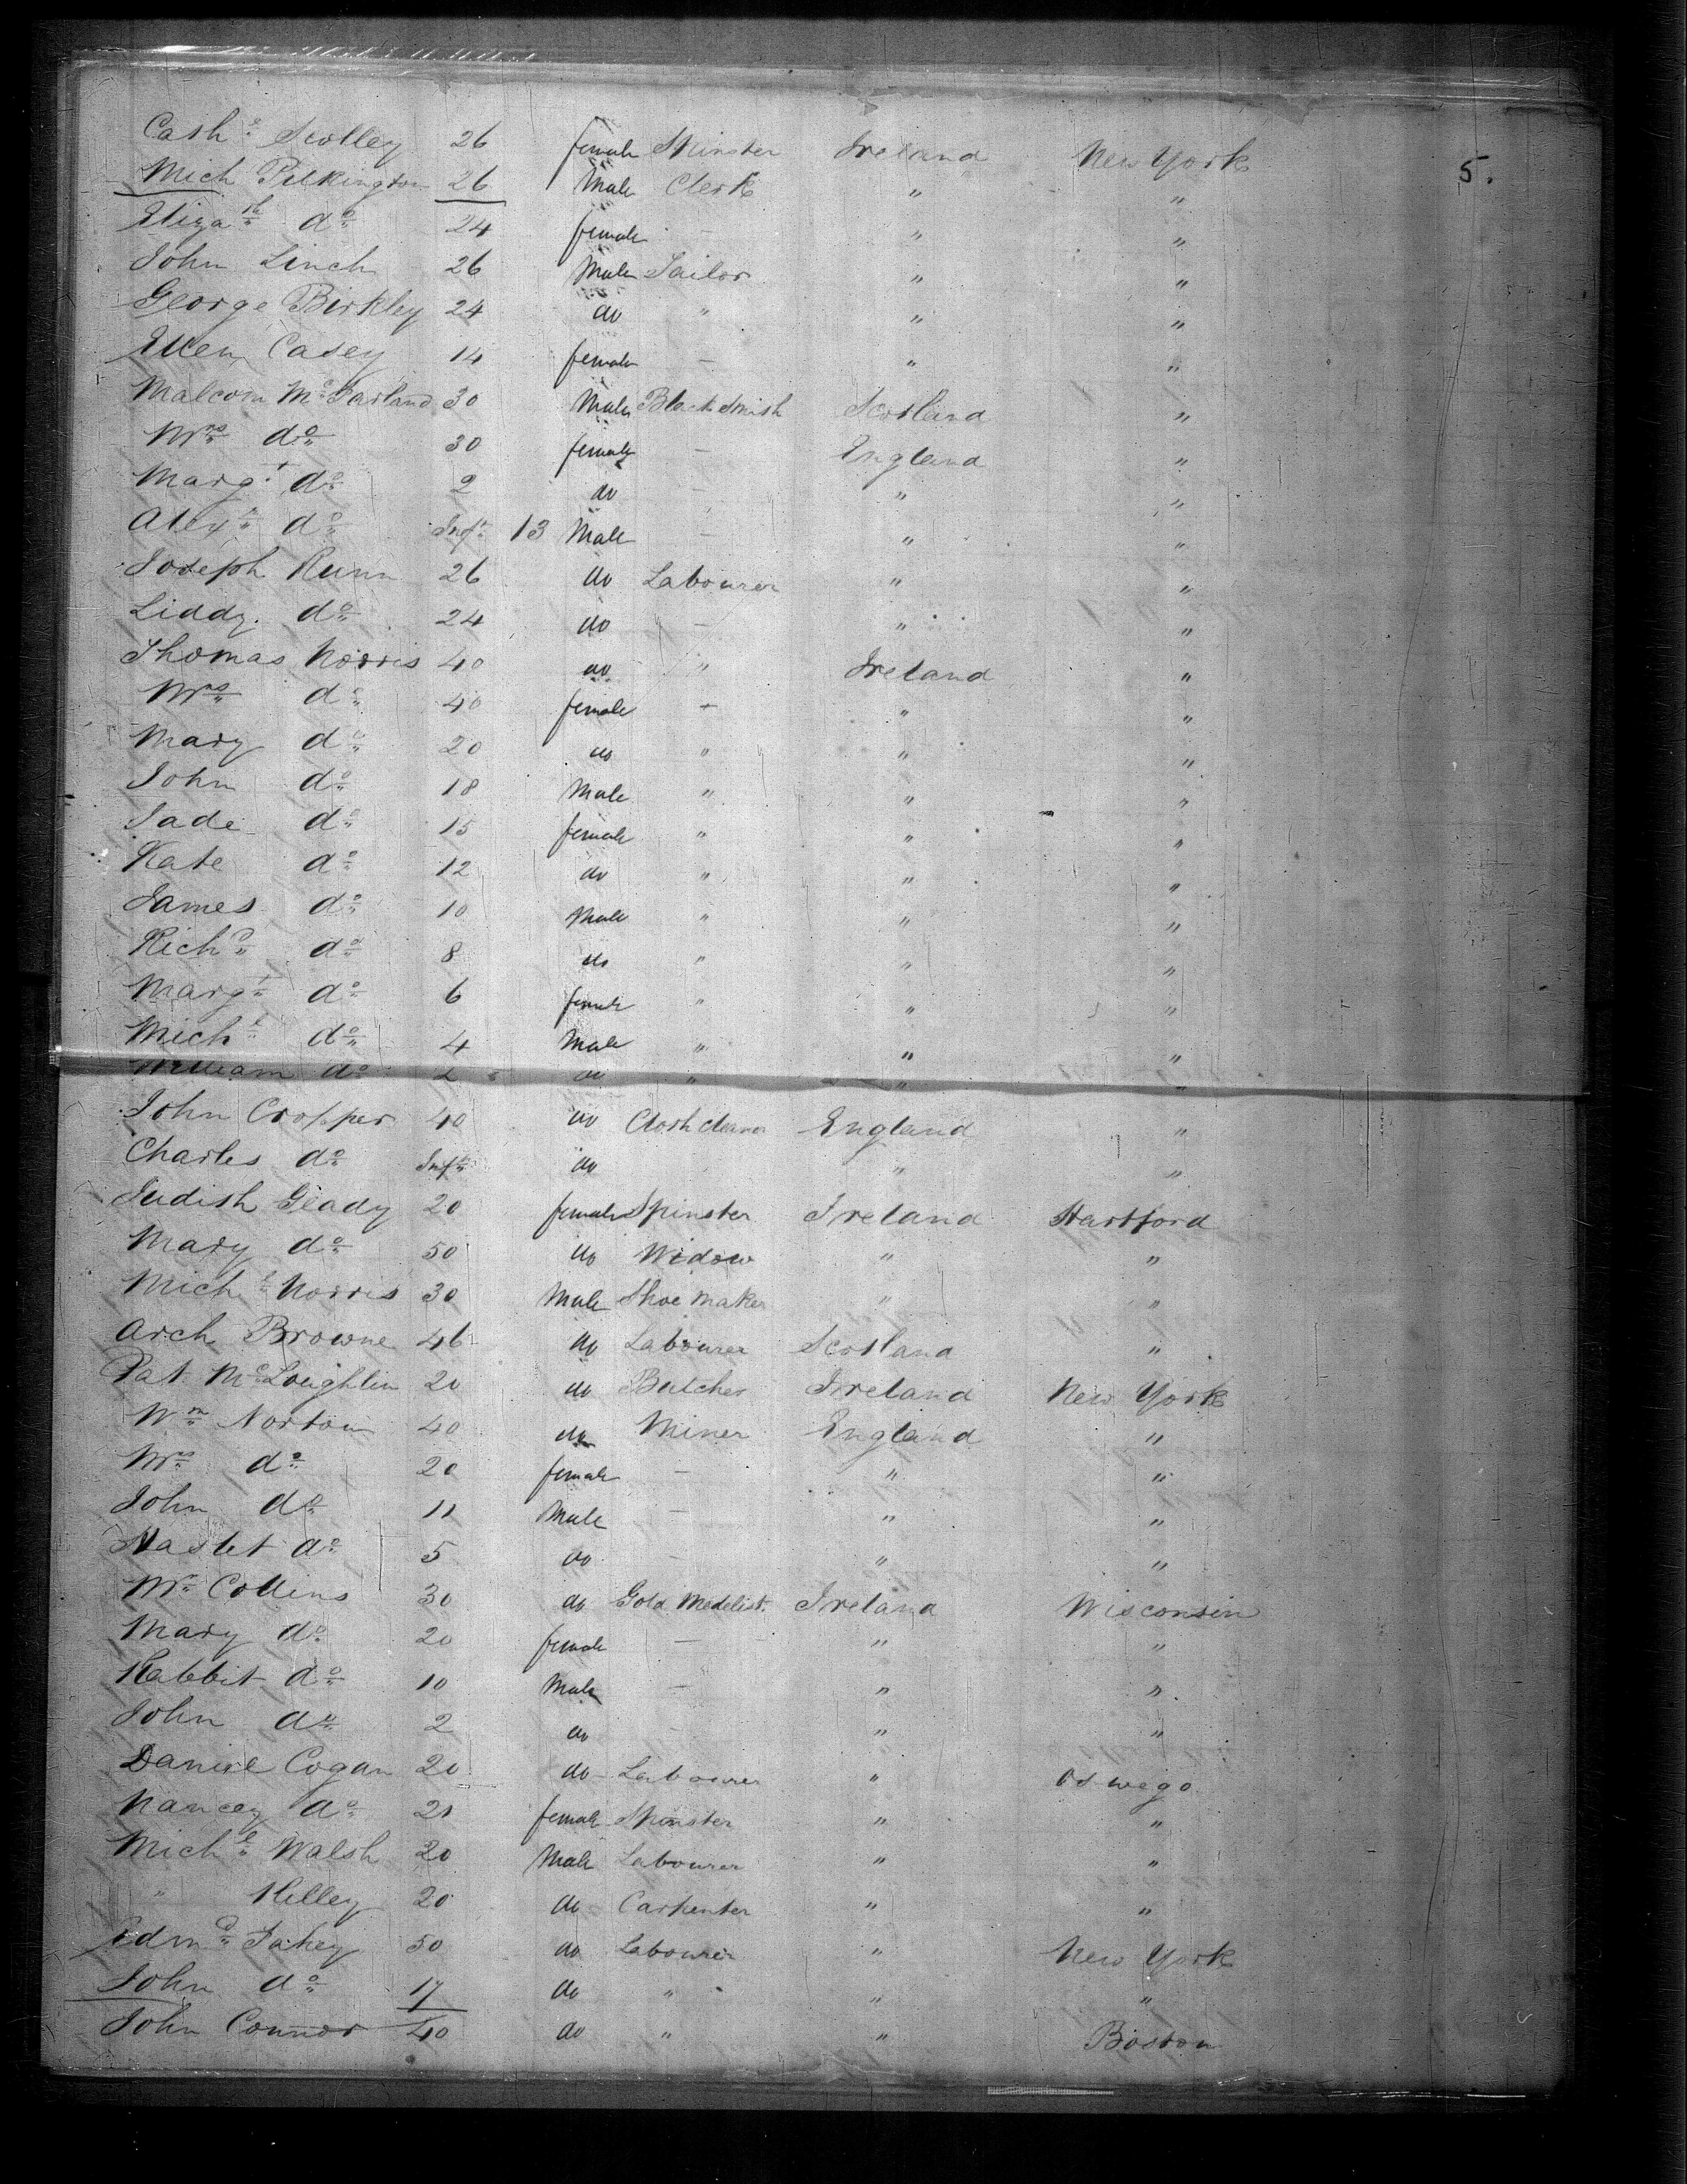 Cathe Scolley 26 female Spinster Ireland New York 5.
Mich Pilkington 26 Male Clerk " "
Elizath do 24 female - " "
John Linch 26 Male Tailor " "
George Birkley 24 do " " "
Ellen Casey 14 female - " "
Malcom McFarland 30 Male Blacksmith Scotland "
Mrs do 30 female - England "
Margt do 2 do - " "
Alexr do Inft 13 Male - " "
Joseph Runn 26 do Labourer " "
Liddy do 24 do - " "
Thomas Norris 40 do " Ireland "
Mrs do 40 female - " "
Mary do 20 do " " "
John do 18 Male " " "
Jade do 15 female " " "
Kate do 12 do " " "
James do 10 Male " " "
Richd do 8 do " " "
Margt do 6 female " " "
Michl do 4 Male " " "
William do 2 do " " "
John Cropper 40 do England "
Charles do Inft do " "
Judith Glady 20 female Spinster Ireland Hartford
Mary do 50 do Widow " "
Michl Norris 30 Male Shoe Maker " "
Arch Browne 46 do Labourer Scotland "
Pat McLoughlin 20 do Butcher Ireland New York
Wm Norton 40 do Miner England "
Mrs do 20 female - " "
John do 11 Male - " "
Haslet do 5 do - " "
Mr Collins 30 do Gold Medelist. Ireland Wisconsin
Mary do 20 female - " "
Rabbit do 10 Male - " "
John do 2 do - " "
Daniel Cogan 20 do Labourer " Oswego
Nancey do 21 female Spinster " "
Michl Walsh 20 Male Labourer " "
" Killey 20 do Carpenter " "
Edmd Fahey 50 do Labourer " New York
John do 17 do " " "
John Connor 40 do " " Boston